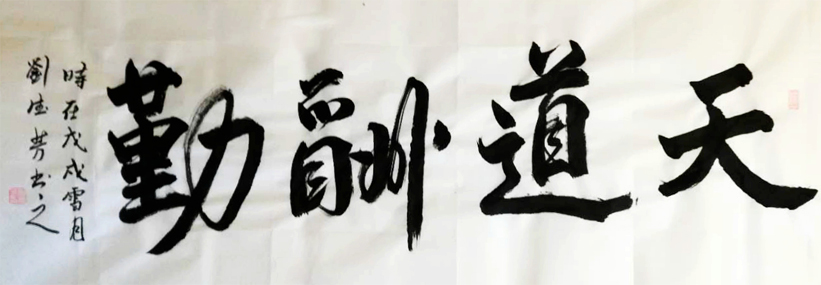 天道酬勤
時在戊戌雪月
劉德芳書之